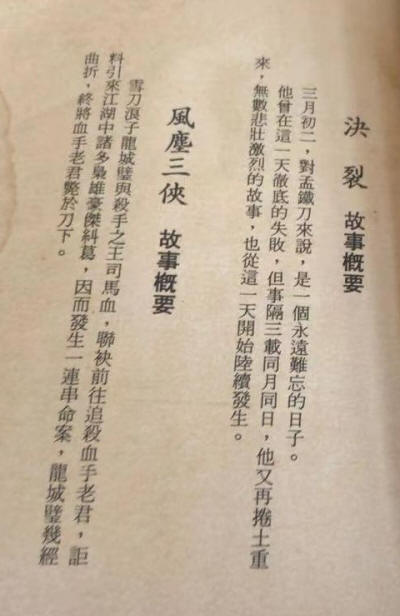 決裂 故事概要
三月初二，對孟鐵刀來說，是一個永遠難忘的日子。
他曾在這一天徹底的失敗，但事隔三載同月同日，他又再捲土重
來，無數悲壯激烈的故事，也從這一天開始陸續發生。
風塵三俠 故事概要
雪刀浪子龍城璧與殺手之王司馬血，聯袂前往追殺血手老君，詎
料引來江湖中諸多梟雄豪傑糾葛，因而發生一連串命案，龍城璧幾經
曲折，終將血手老君斃於刀下。